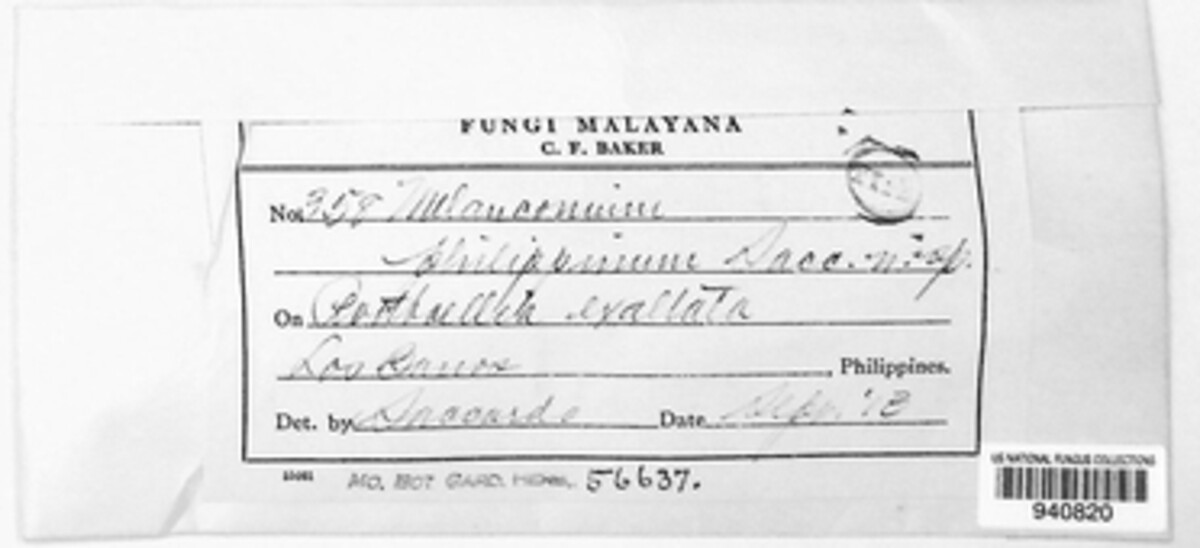 FUNGI MALAYANA
C. F. BAKER
No. 358 Melanconium
philippinum Sacc. n. sp.
On Rottboellia exaltata
Los Banos, Philippines.
Det. by Saccardo Date Sep. '13
MO. BOT GARD. HERB. 56637.
US NATIONAL FUNGUS COLLECTIONS
940820